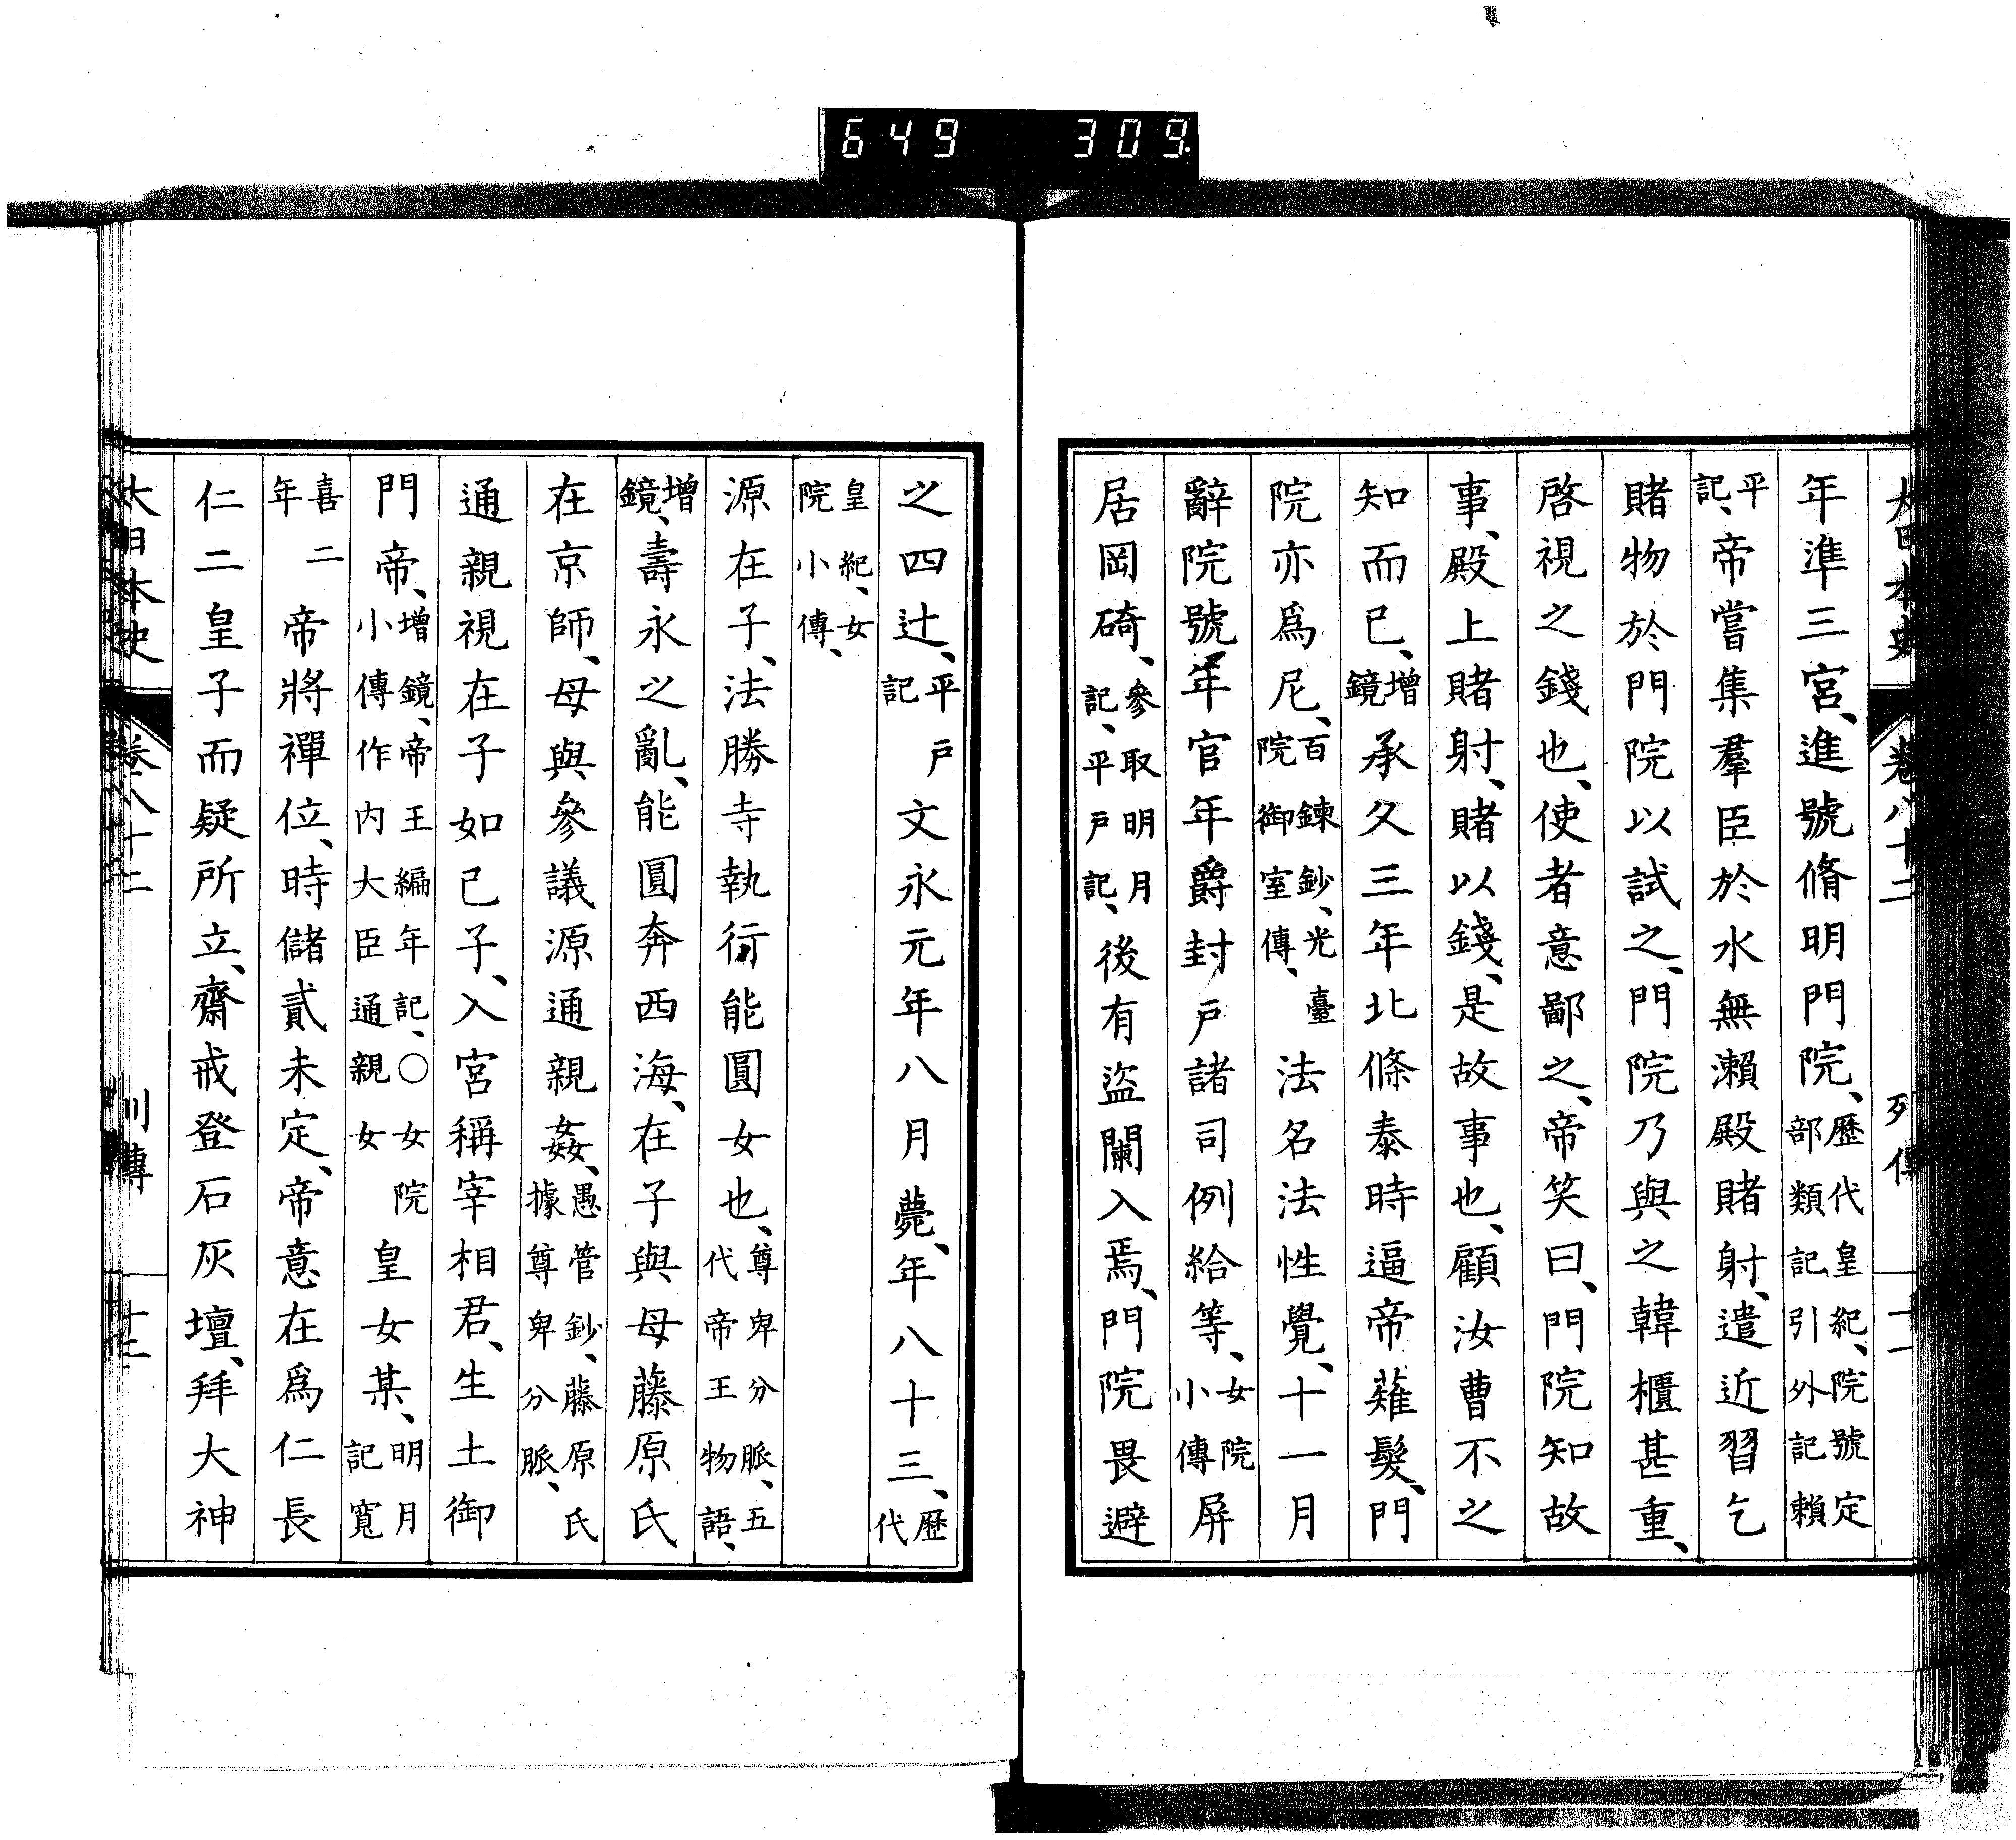 649 309
大日本史 卷八十二 列傳 十一
年準三宮、進號脩明門院、歷代皇紀、院號定部類記引外記賴
平記、帝嘗集羣臣於水無瀨殿賭射、遣近習乞
賭物於門院以試之、門院乃與之韓櫃甚重、
啓視之錢也、使者意鄙之、帝笑曰、門院知故
事、殿上賭射、賭以錢、是故事也、顧汝曹不之
知而已、增鏡承久三年北條泰時逼帝薙髮、門
院亦爲尼、百鍊鈔、光臺院御室傳、法名法性覺、十一月
辭院號年官年爵封戶諸司例給等、女院小傳屏
居岡碕、參取明月記、平戶記、後有盜闌入焉、門院畏避
之四辻、平戶記文永元年八月薨、年八十三、歷代
皇紀、女院小傳、
源在子、法勝寺執行能圓女也、尊卑分脈、五代帝王物語、
增鏡、壽永之亂、能圓奔西海、在子與母藤原氏
在京師、母與參議源通親姦、愚管鈔、藤原氏據尊卑分脈、
通親視在子如己子、入宮稱宰相君、生土御
門帝、增鏡、帝王編年記、○女院小傳作内大臣通親女皇女某、明月記寬
喜二年帝將禪位、時儲貳未定、帝意在爲仁長
仁二皇子而疑所立、齋戒登石灰壇、拜大神
大日本史 卷八十二 列傳 十二